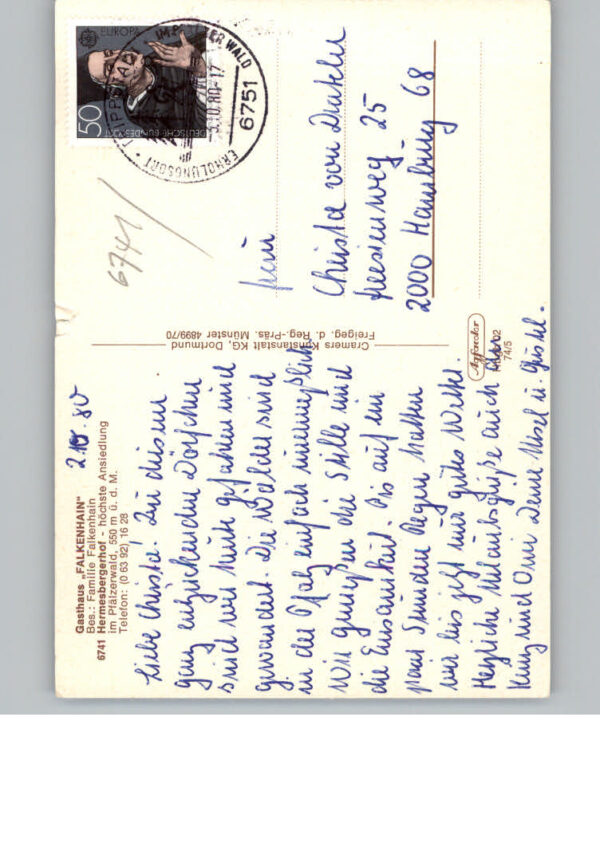 Gasthaus „FALKENHAIN"
Bes.: Familie Falkenhain
6741 Hermesbergerhof - höchste Ansiedlung
im Pfälzerwald, 550 m ü. d. M.
Telefon: (0 63 92) 16 28
2.10.80
Liebe Christa. In diesem
ganz entzückenden Dörfchen
sind wir heute gefahren und
gewandert. Die Wälder sind
in der Pfalz einfach unermeßlich
Wir genießen die Stille und
die Einsamkeit. Bis auf ein
paar Stunden Regen hatten
wir bis jetzt nur gutes Wetter.
Herzliche Urlaubsgrüße auch an
und Omi Deine Ursel u. Günt.
Cramers Kunstanstalt KG, Dortmund
Freigeg. d. Reg.-Präs. Münster 4899/70
02
74/5
EUROPA
50
DEUTSCHE BUNDESPOST
ER WALD
-3.10.80-17
6751
ERHOLUNGSORT
6741
Christa von
25
2000 Hamburg 68